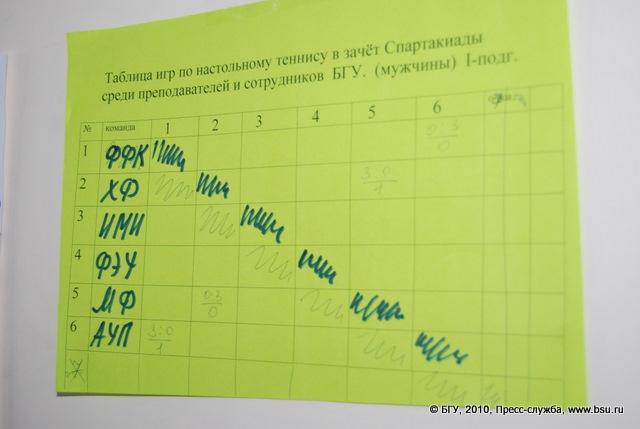 Таблица игр по настольному теннису в зачёт Спартакиады
среди преподавателей и сотрудников БГУ. (мужчины) I-подг.
№ команда 1 2 3 4 5 6
1 ФФК 0:3
0
2 ХФ 3:0
1
3 ИМИ
4 ФЭУ
5 МФ 0:3
0
6 АУП 3:0
1
7
© БГУ, 2010, Пресс-служба, www.bsu.ru